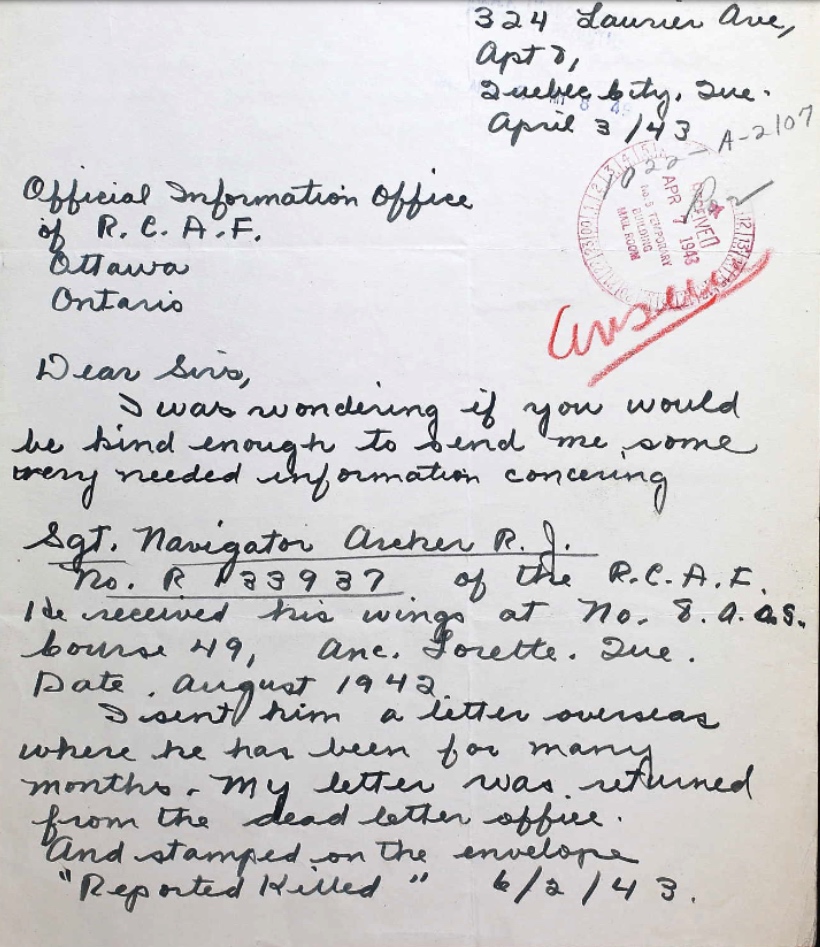 324 Laurier Ave,
Apt 8,
Quebec City, Que.
April 3/43
A-2107
Official Information Office
of R.C.A.F.
Ottawa
Ontario
RECEIVED
APR 7 1943
No. 5 TEMPORARY
BUILDING
MAIL ROOM
Dear Sirs,
I was wondering if you would
be kind enough to send me some
very needed information concering
Sgt. Navigator Archer R. J.
No. R 133937 of the R.C.A.F.
He received his wings at No. 8. A.O.S.
Course 49, Anc. Lorette. Que.
Date. August 1942.
I sent him a letter overseas
where he has been for many
months. My letter was returned
from the dead letter office.
And stamped on the envelope
"Reported Killed" 6/2/43.